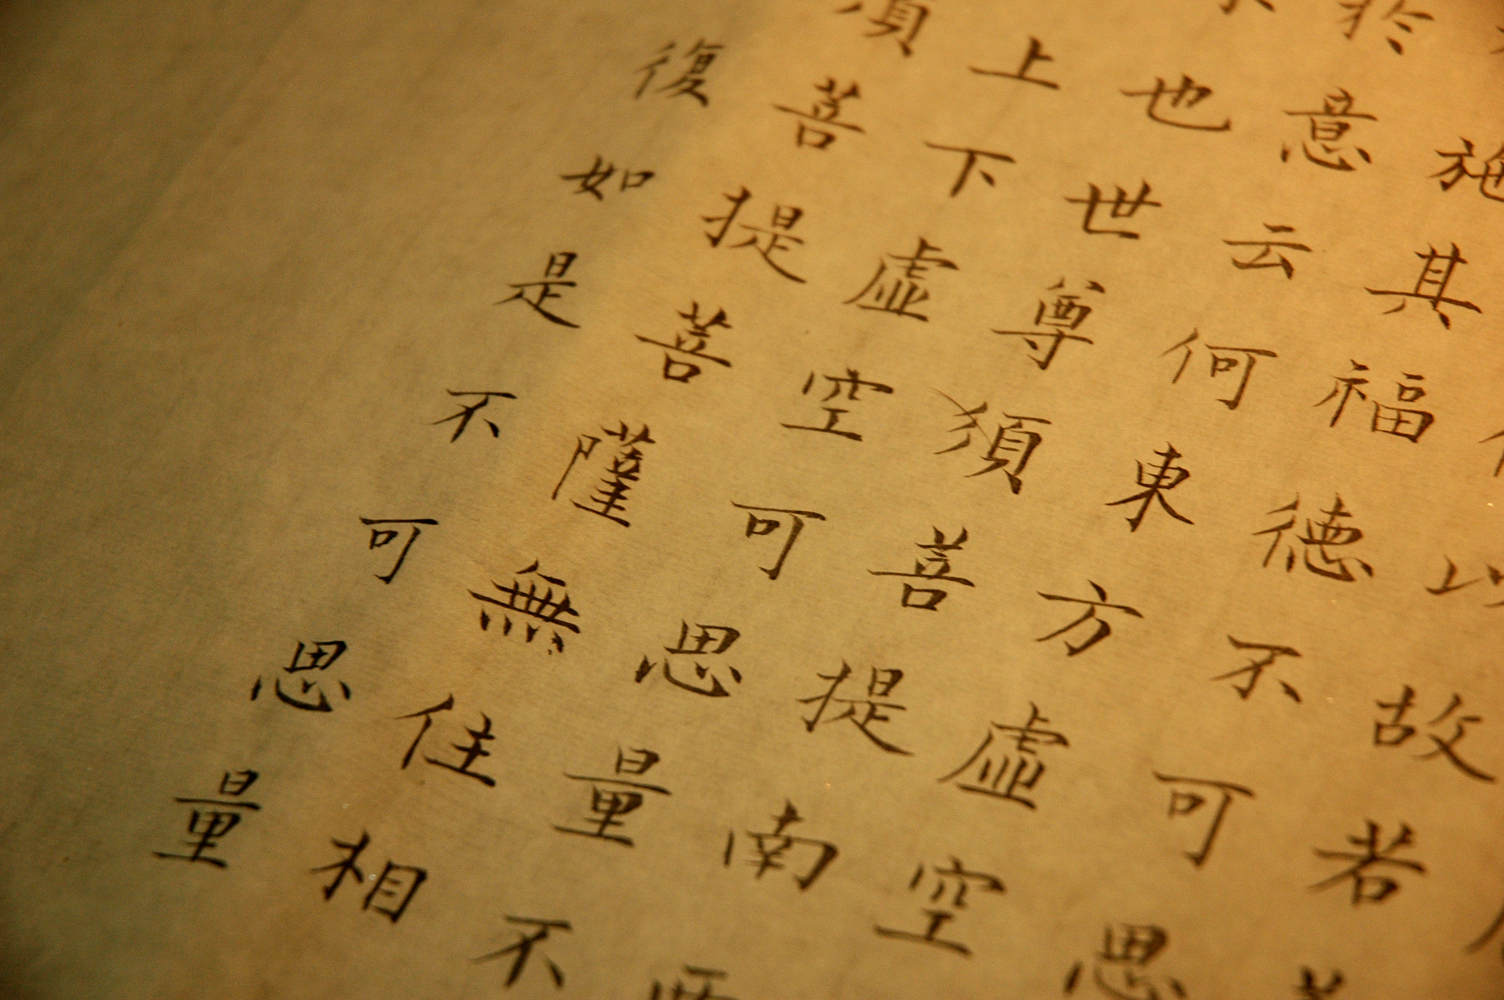 以故若
施其福德不可思
於意云何東方虛空
也世尊須菩提南
上下虛空可思量不
須菩提菩薩無住相
復如是不可思量